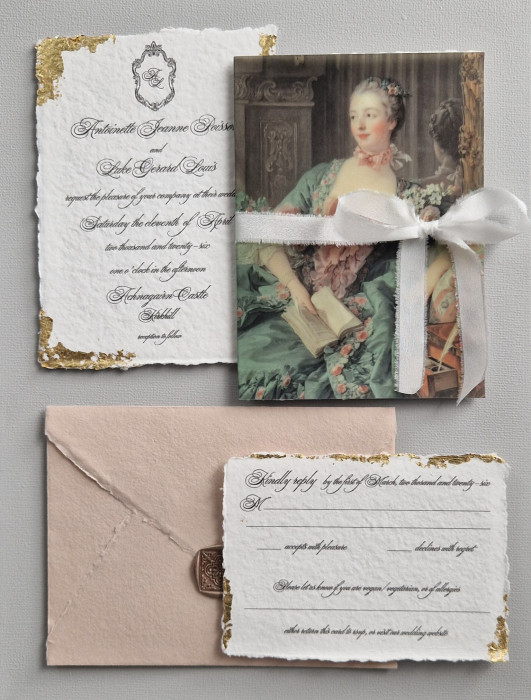 Antoinette Jeanne Poisson
and
Luke Gerard Louis
request the pleasure of your company at their
Saturday the eleventh of April
two thousand and twenty-six
one o'clock in the afternoon
Achnagairn Castle
Kirkhill
reception to follow
Kindly reply by the first of March, two thousand and twenty-six
M
accepts with pleasure declines with regret
Please let us know if you are vegan/vegetarian, or of allergies
either return this card to rsvp, or visit our wedding website